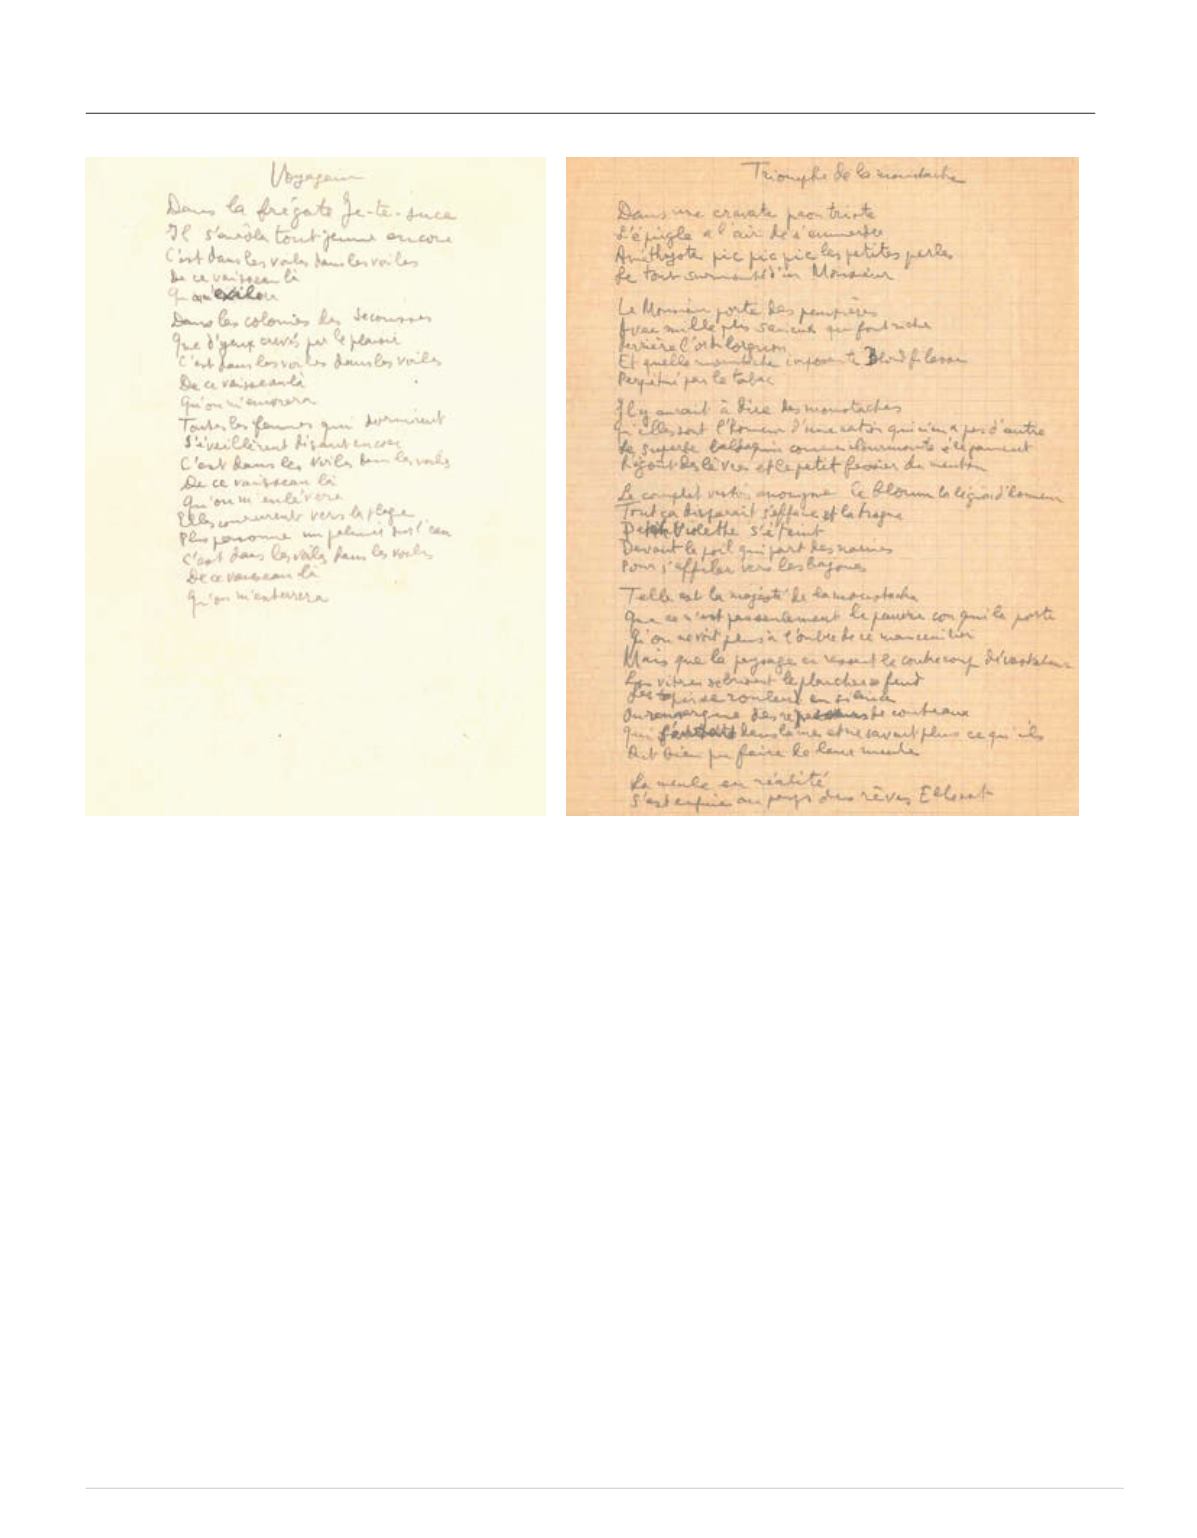 Voyageur
Dans la frégate Je-te-suce
Il s'enrôla tout jeune encore
C'est dans les voiles dans les voiles
De ce vaisseau là
Qu'on exilera
Dans les colonies des secousses
Que d'yeux crevés par le plaisir
C'est dans les voiles dans les voiles
De ce vaisseau là
Qu'on m'enverra
Toutes les femmes qui dormirent
S'éveillèrent disant encore
C'est dans les voiles dans les voiles
De ce vaisseau là
Qu'on m'enlèvera
Elles coururent vers la plage
Plus personne un palmier sur l'eau
C'est dans les voiles dans les voiles
De ce vaisseau là
Qu'on m'enterrera
Triomphe de la moustache
Dans une cravate paon triste
L'épingle a l'air de s'emmerder
Améthyste pic pic pic les petites perles
Le tout surmonté d'un Monsieur
Le Monsieur porte des paupières
Avec mille plis sérieux qui font riche
Derrière l'or du lorgnon
Et quelle moustache imposante Blond filasse
Perpétué par le tabac
Il y aurait à dire des moustaches
Qu'elles sont l'honneur d'une nation qui n'en a pas d'autre
Le superbe baldaquin comme il surmonte
L'égout des lèvres et le petit fessier du menton
Le complet veston anonyme la légion d'honneur
Tout ça disparait s'efface et la trogne
Violette s'éteint
Devant le poil qui part des narines
Pour s'effiler vers les bajoues
Telle est la majesté de la moustache
Que ce n'est pas seulement le pauvre con qui la porte
Qu'on ne voit plus à l'ombre de ce mancenillier
Mais que le paysage en ressent le contrecoup dévastateur
Les vitres se brisent le plancher se fend
Les tapis se roulent en silence
On remarque des de couteaux
Qui dans la mer et ne savait plus ce qu'ils
Ont bien pu faire de leur meule
La meule en réalité
S'est enfuie au pays des rêves Elle est